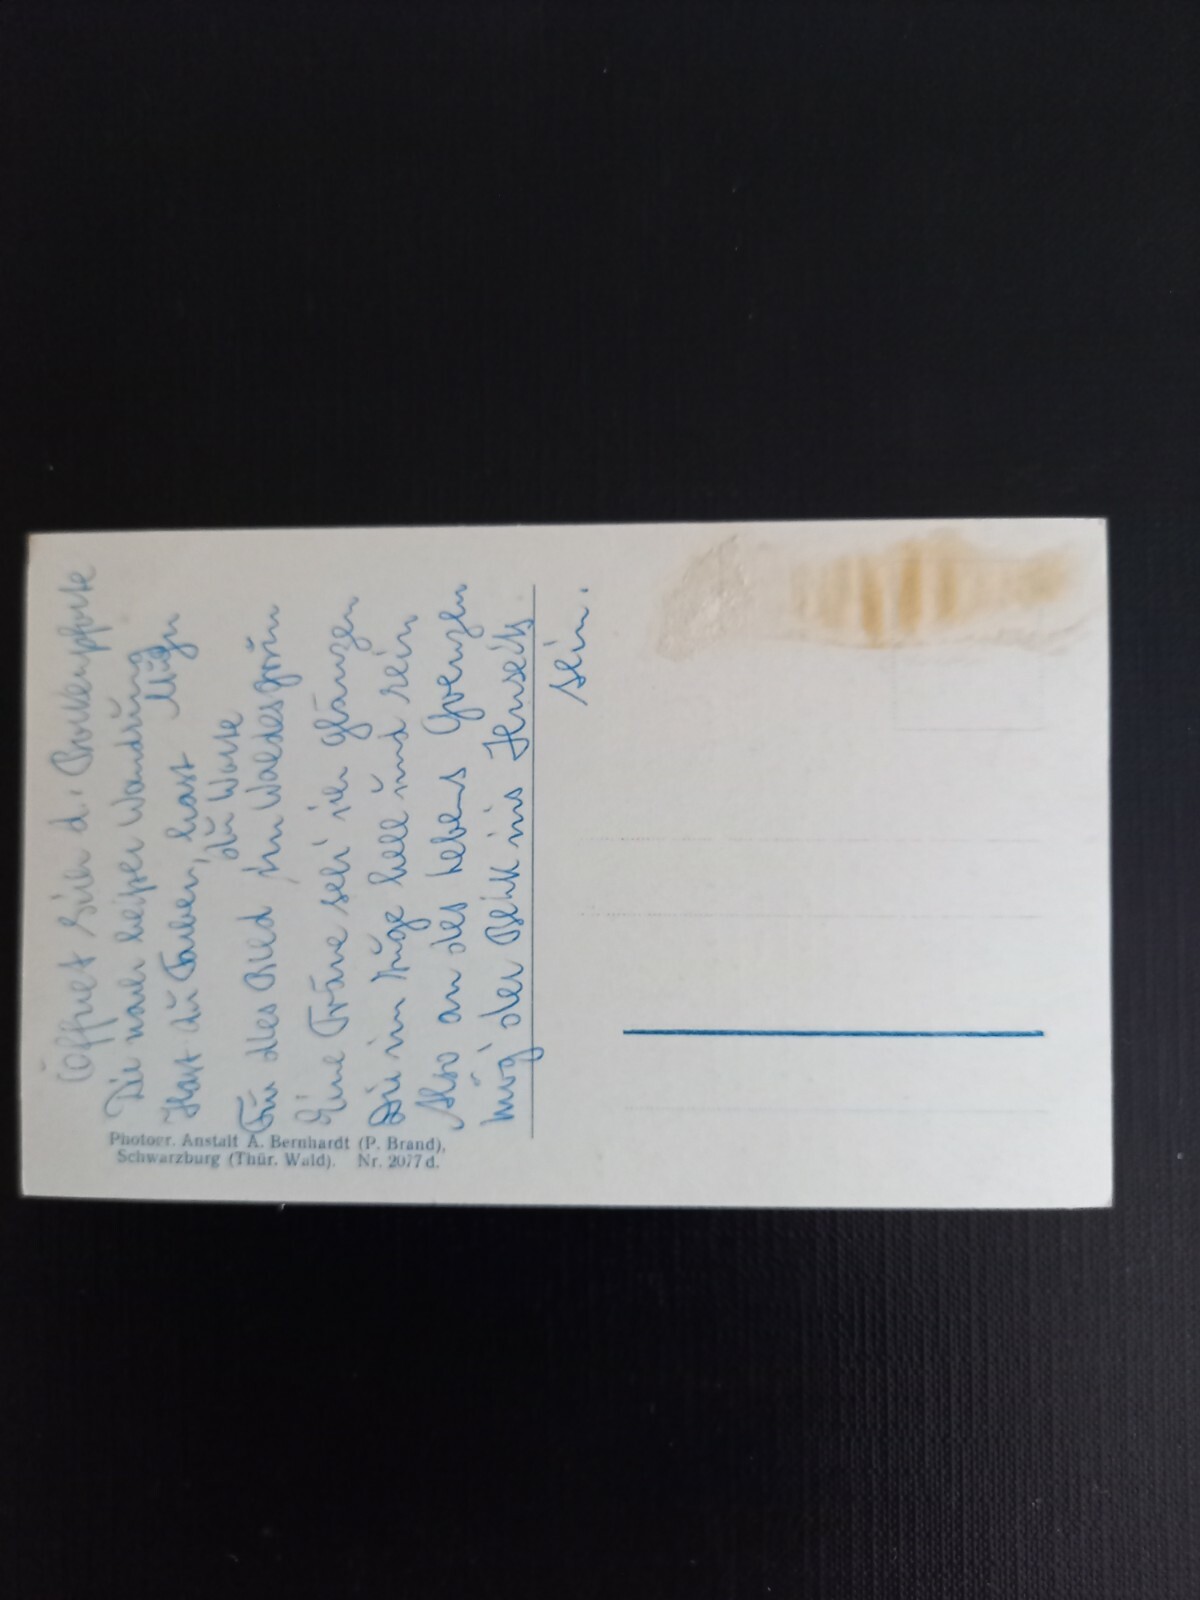 Öffnet sich d. Birkenpforte
Die nach heißer Wandrung Mühn
Hast du Farben, hast
du Worte
Für dies Bild im Waldesgrün
Eine Träne seh' ich glänzen
Dir im Auge hell und rein
Also an des Lebens Grenzen
mög' der Blick ins Jenseits
sein.
Photogr. Anstalt A. Bernhardt (P. Brand),
Schwarzburg (Thür. Wald). Nr. 2077 d.